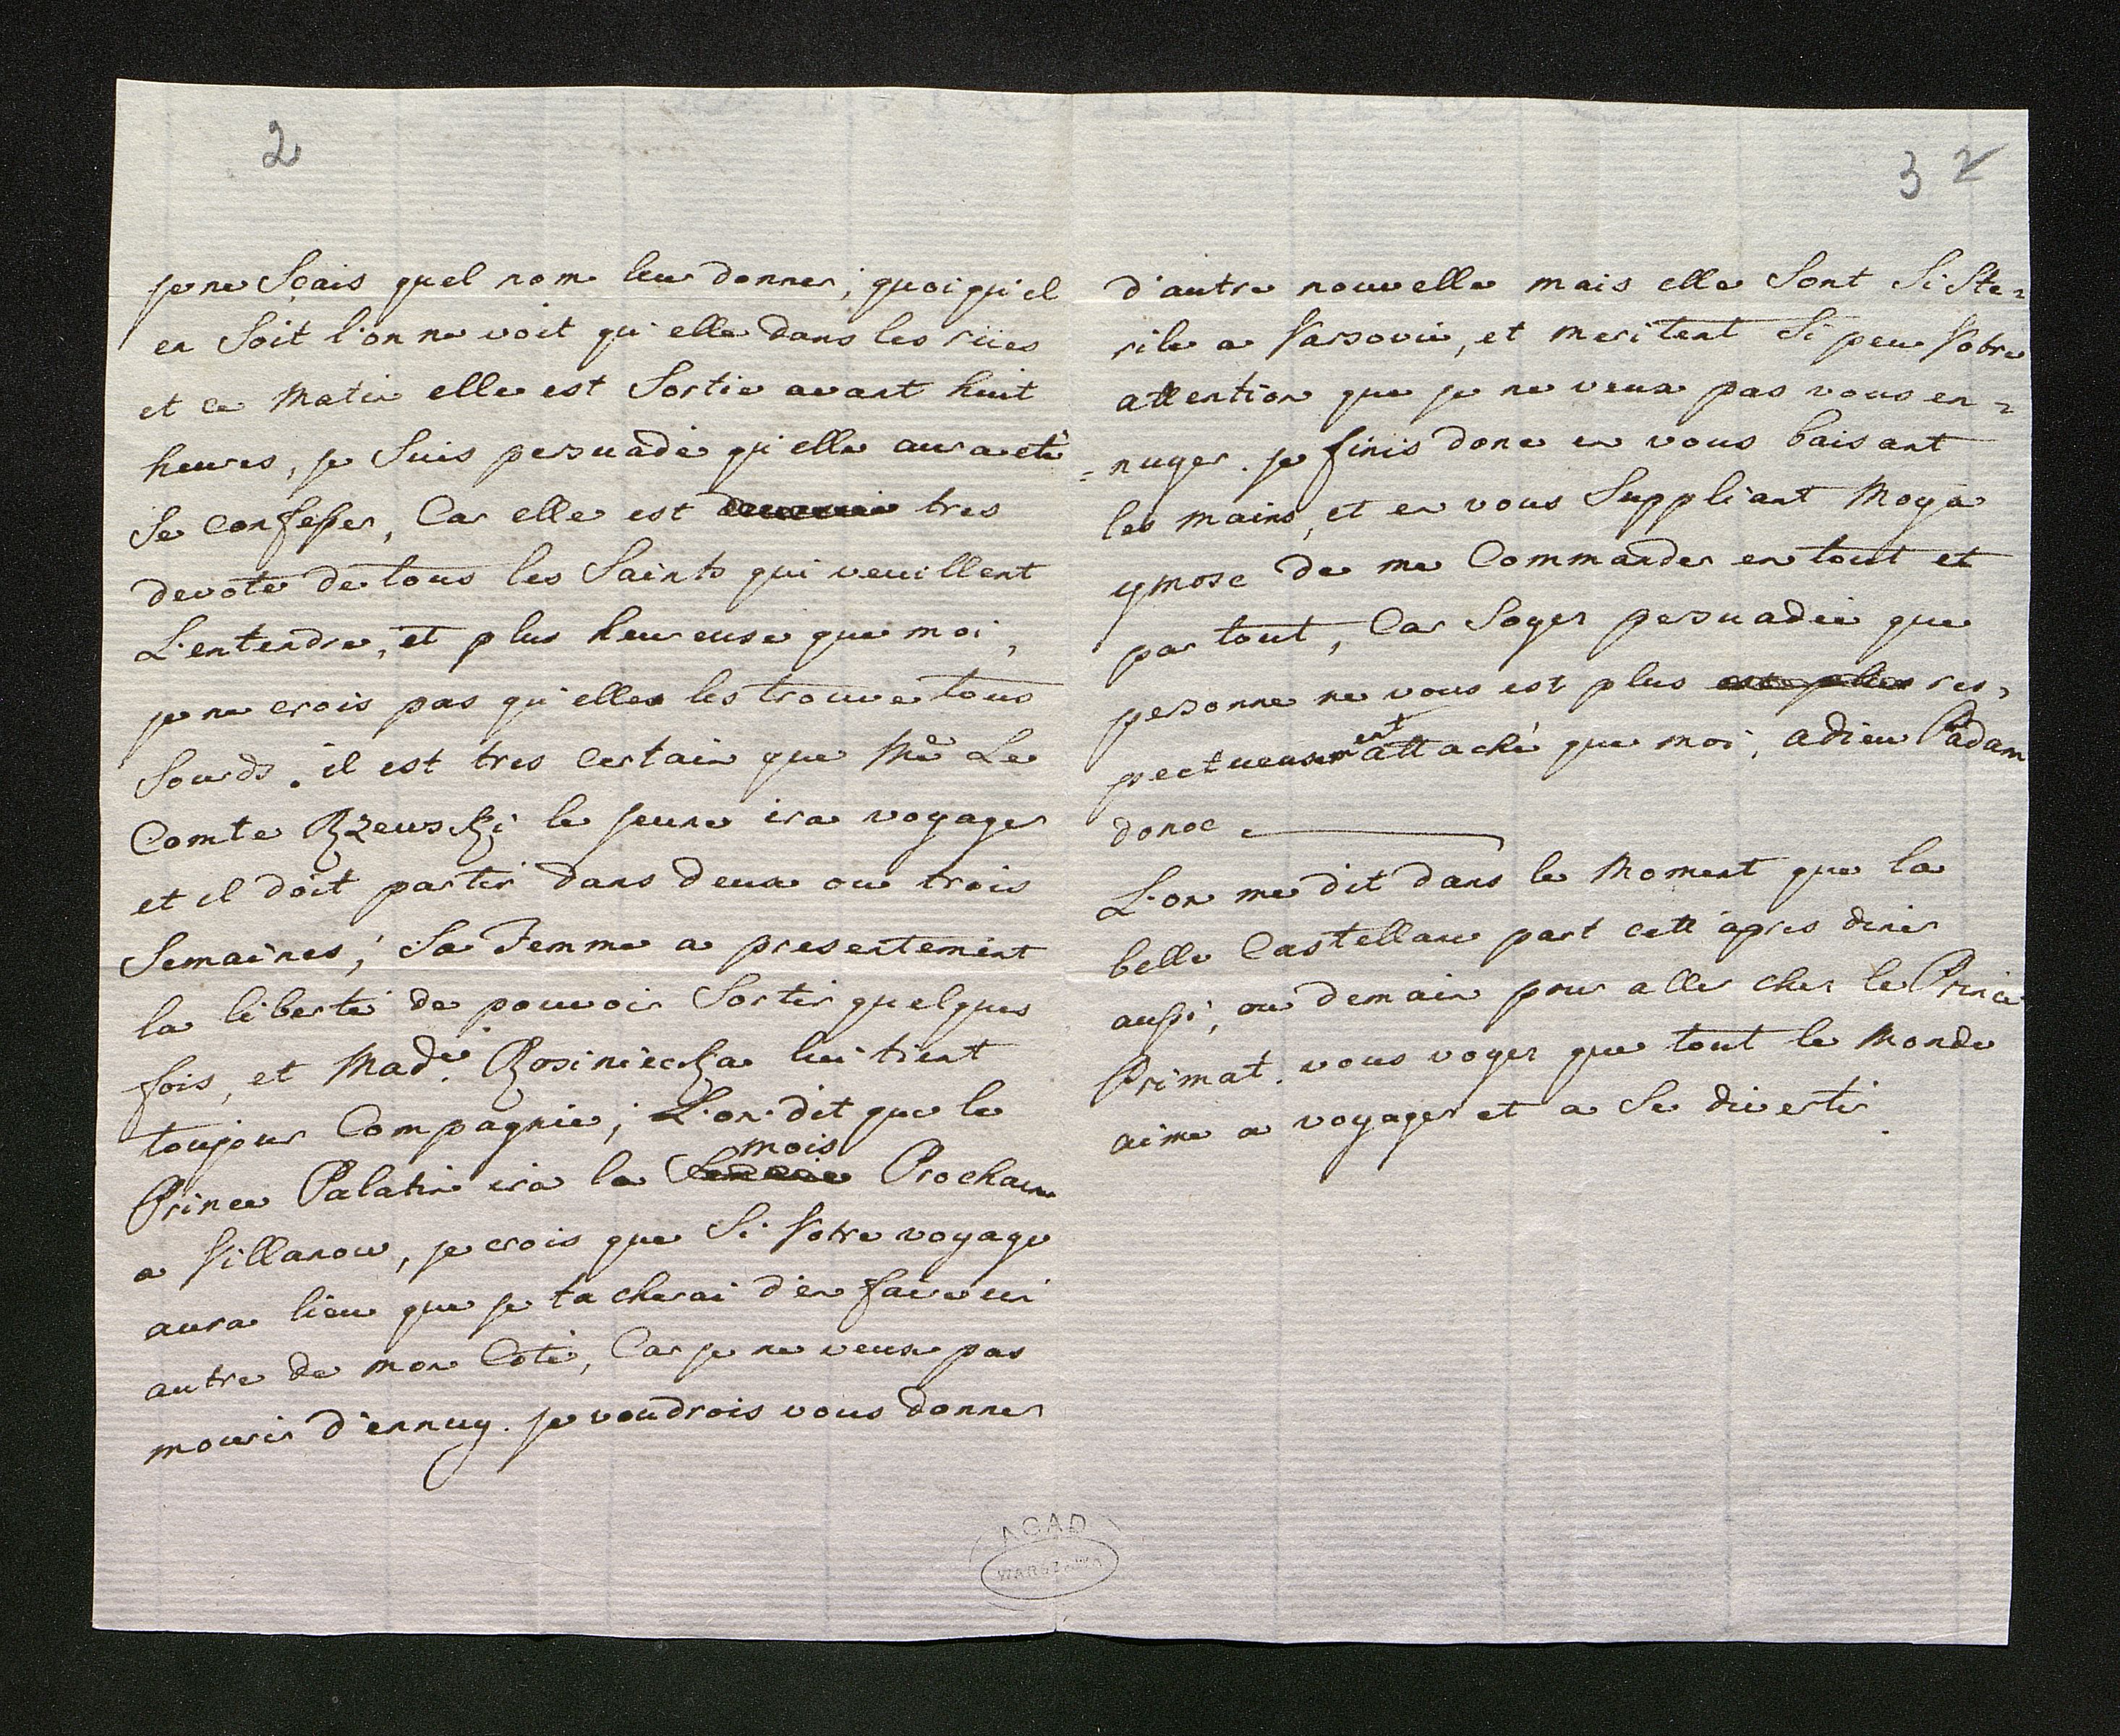 2
je ne Sçais quel nom leur donner; quoiqu'il
en Soit l'on ne voit qu'elle dans les rües
et ce Matin elle est Sortie avant huit
heures, je Suis persuadé qu'elle aura eté
Se confesser, Car elle est tres
devote de tous les Saints qui veuillent
L'entendre, et plus heureuse que moi,
je ne crois pas qu'elle les trouve tous
Sourds. il est tres certain que Mr Le
Comte Rzewski le jeune ira voyager
et il doit partir dans deux ou trois
Semaines; Sa Femme a presentement
la liberté de pouvoir Sortir quelques
fois, et Made. Kosiniecka lui tient
toujour Compagnie; L'on dit que le
Prince Palatin ira le mois Prochain
a Villanow, je crois que Si Votre voyage
aura lieu que je tacherai d'en faire un
autre de mon Coté, Car je ne veux pas
mourir d'ennuy. je voudrois vous donner
3 2
d'autre nouvelle mais elle Sont Si Ste=
rile a Varsovie, et meritent Si peu Votre
attention que je ne veux pas vous en=
=nuyer. je finis donc en vous baisant
les mains, et en vous Suppliant Moya
ymosc de me Commander en tout et
par tout, Car Soyer persuadée que
personne ne vous est plus res=
pectueusement attaché que moi, adieu Padam
donoc
L'on me dit dans le Moment que la
belle Castellane part cett'apres diner
aussi, ou demain pour aller cher le Prince
Primat. vous voyer que tout le Monde
aime a voyager et a Se divertir.
AGAD
WARSZAWA